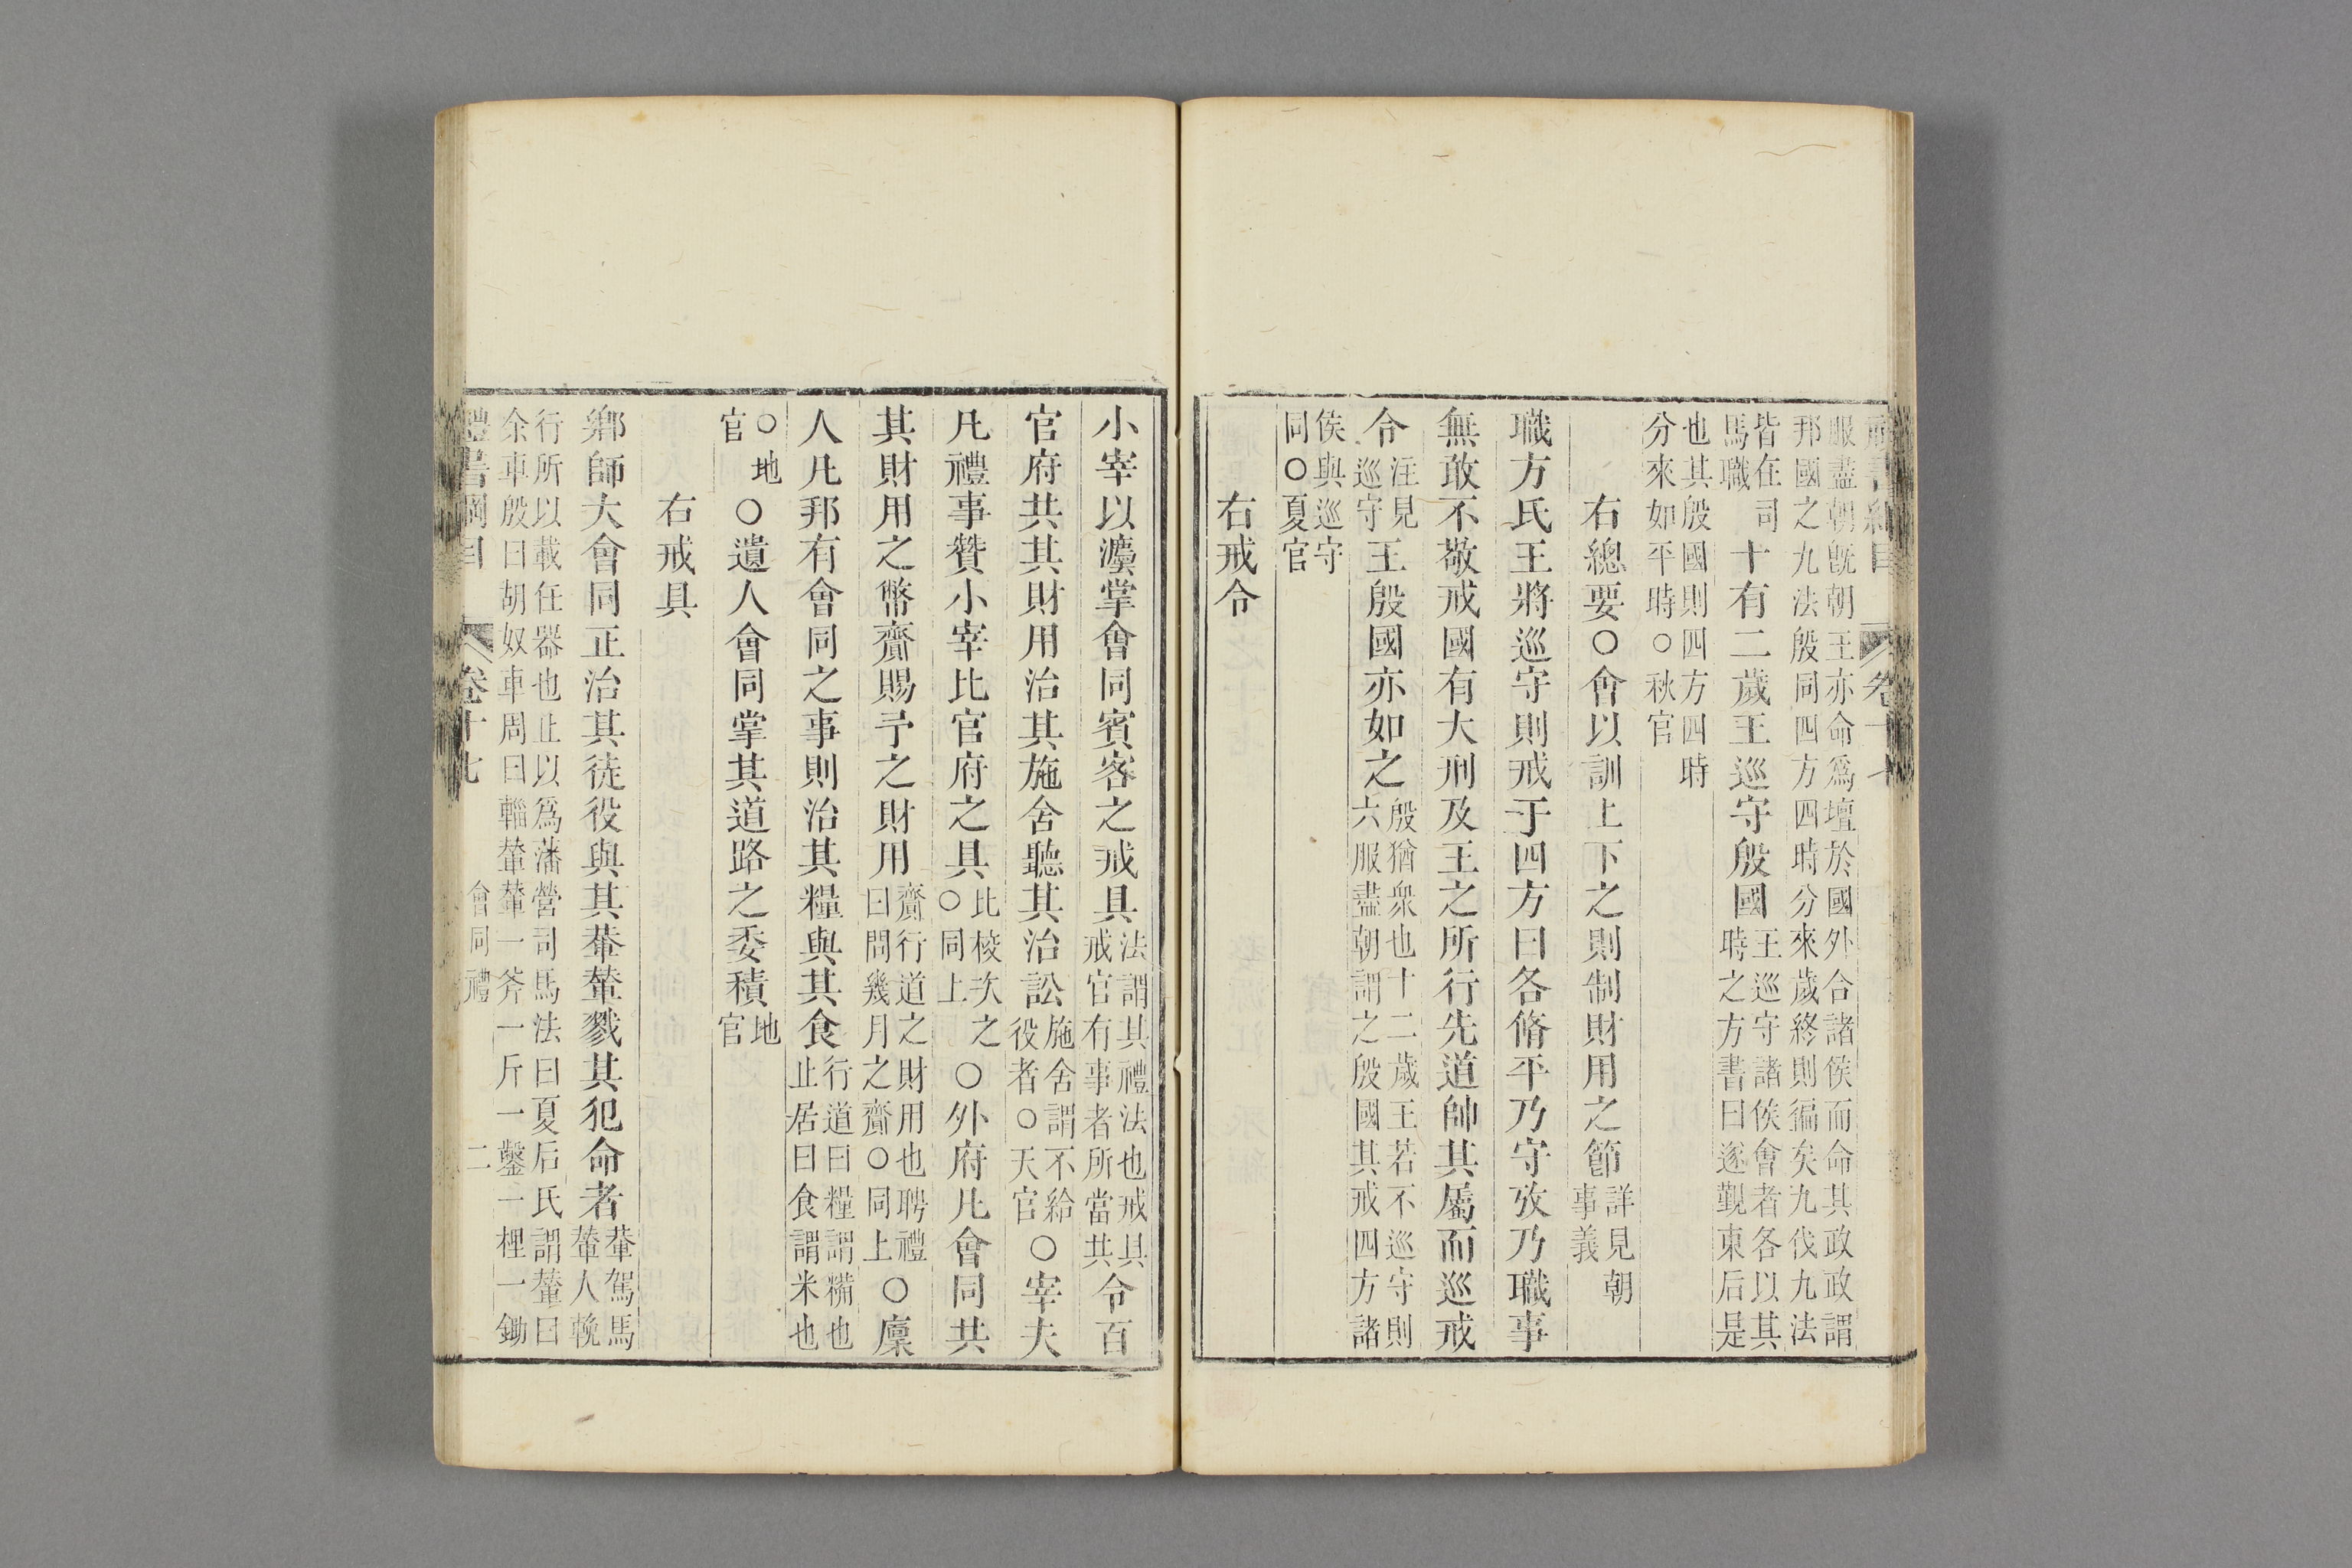 禮書綱目 卷十七
服盡朝旣朝王亦命爲壇於國外合諸侯而命其政政謂
邦國之九法殷同四方四時分來歲終則徧矣九伐九法
皆在司
馬職
十有二歲王巡守殷國
王巡守諸侯會者各以其
時之方書曰遂覲東后是
也其殷國則四方四時
分來如平時○秋官
右總要○會以訓上下之則制財用之節
詳見朝
事義
職方氏王將巡守則戒于四方曰各脩平乃守攷乃職事
無敢不敬戒國有大刑及王之所行先道帥其屬而巡戒
令
注見
巡守
王殷國亦如之
殷猶衆也十二歲王若不巡守則
六服盡朝謂之殷國其戒四方諸
侯與巡守
同○夏官
右戒令
小宰以灋掌會同賓客之戒具
法謂其禮法也戒具
戒官有事者所當共
令百
官府共其財用治其施舍聽其治訟
施舍謂不給
役者○天官
○宰夫
凡禮事贊小宰比官府之具
比校次之
○同上
○外府凡會同共
其財用之幣齎賜予之財用
齎行道之財用也聘禮
曰問幾月之齎○同上
○廩
人凡邦有會同之事則治其糧與其食
行道曰糧謂糒也
止居曰食謂米也
○地
官
○遺人會同掌其道路之委積
地
官
右戒具
鄉師大會同正治其徒役與其輂輦戮其犯命者
輂駕馬
輦人輓
行所以載任器也止以爲藩營司馬法曰夏后氏謂輦曰
余車殷曰胡奴車周曰輜輦輦一斧一斤一鑿一梩一鋤
禮書綱目 卷十七 會同禮 二